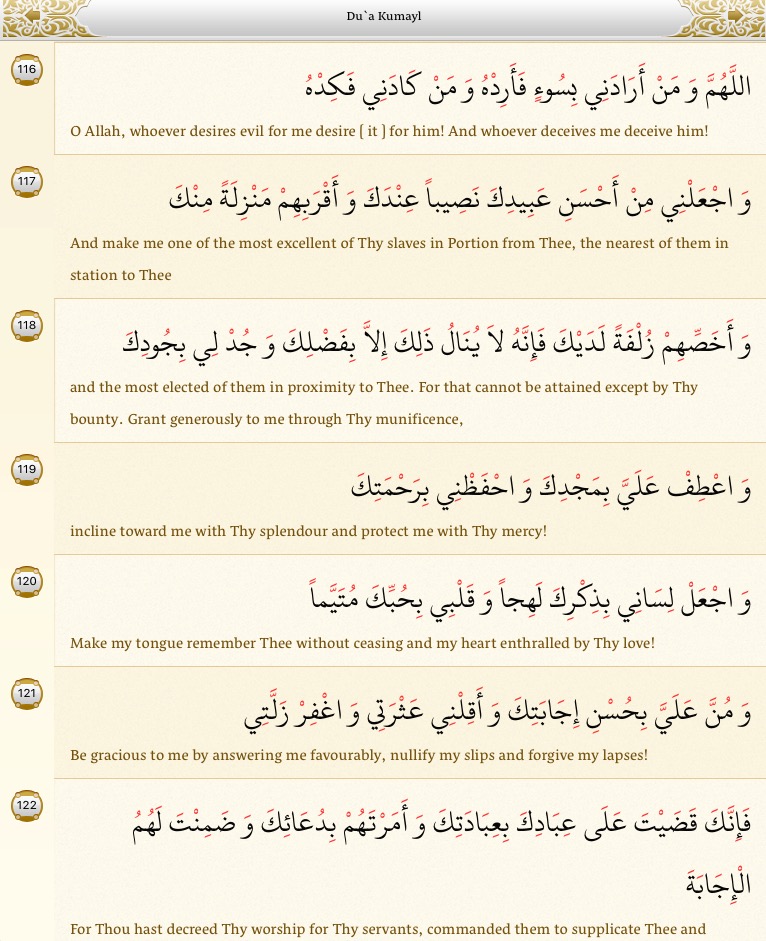 Du`a Kumayl
116
اللَّهُمَّ وَ مَنْ أَرَادَنِي بِسُوءٍ فَأَرِدْهُ وَ مَنْ كَادَنِي فَكِدْهُ
O Allah, whoever desires evil for me desire [ it ] for him! And whoever deceives me deceive him!
117
وَ اجْعَلْنِي مِنْ أَحْسَنِ عَبِيدِكَ نَصِيباً عِنْدَكَ وَ أَقْرَبِهِمْ مَنْزِلَةً مِنْكَ
And make me one of the most excellent of Thy slaves in Portion from Thee, the nearest of them in
station to Thee
118
وَ أَخَصِّهِمْ زُلْفَةً لَدَيْكَ فَإِنَّهُ لاَ يُنَالُ ذَلِكَ إِلاَّ بِفَضْلِكَ وَ جُدْ لِي بِجُودِكَ
and the most elected of them in proximity to Thee. For that cannot be attained except by Thy
bounty. Grant generously to me through Thy munificence,
119
وَ اعْطِفْ عَلَيَّ بِمَجْدِكَ وَ احْفَظْنِي بِرَحْمَتِكَ
incline toward me with Thy splendour and protect me with Thy mercy!
120
وَ اجْعَلْ لِسَانِي بِذِكْرِكَ لَهِجاً وَ قَلْبِي بِحُبِّكَ مُتَيَّماً
Make my tongue remember Thee without ceasing and my heart enthralled by Thy love!
121
وَ مُنَّ عَلَيَّ بِحُسْنِ إِجَابَتِكَ وَ أَقِلْنِي عَثْرَتِي وَ اغْفِرْ زَلَّتِي
Be gracious to me by answering me favourably, nullify my slips and forgive my lapses!
122
فَإِنَّكَ قَضَيْتَ عَلَى عِبَادِكَ بِعِبَادَتِكَ وَ أَمَرْتَهُمْ بِدُعَائِكَ وَ ضَمِنْتَ لَهُمُ
الْإِجَابَةَ
For Thou hast decreed Thy worship for Thy servants, commanded them to supplicate Thee and